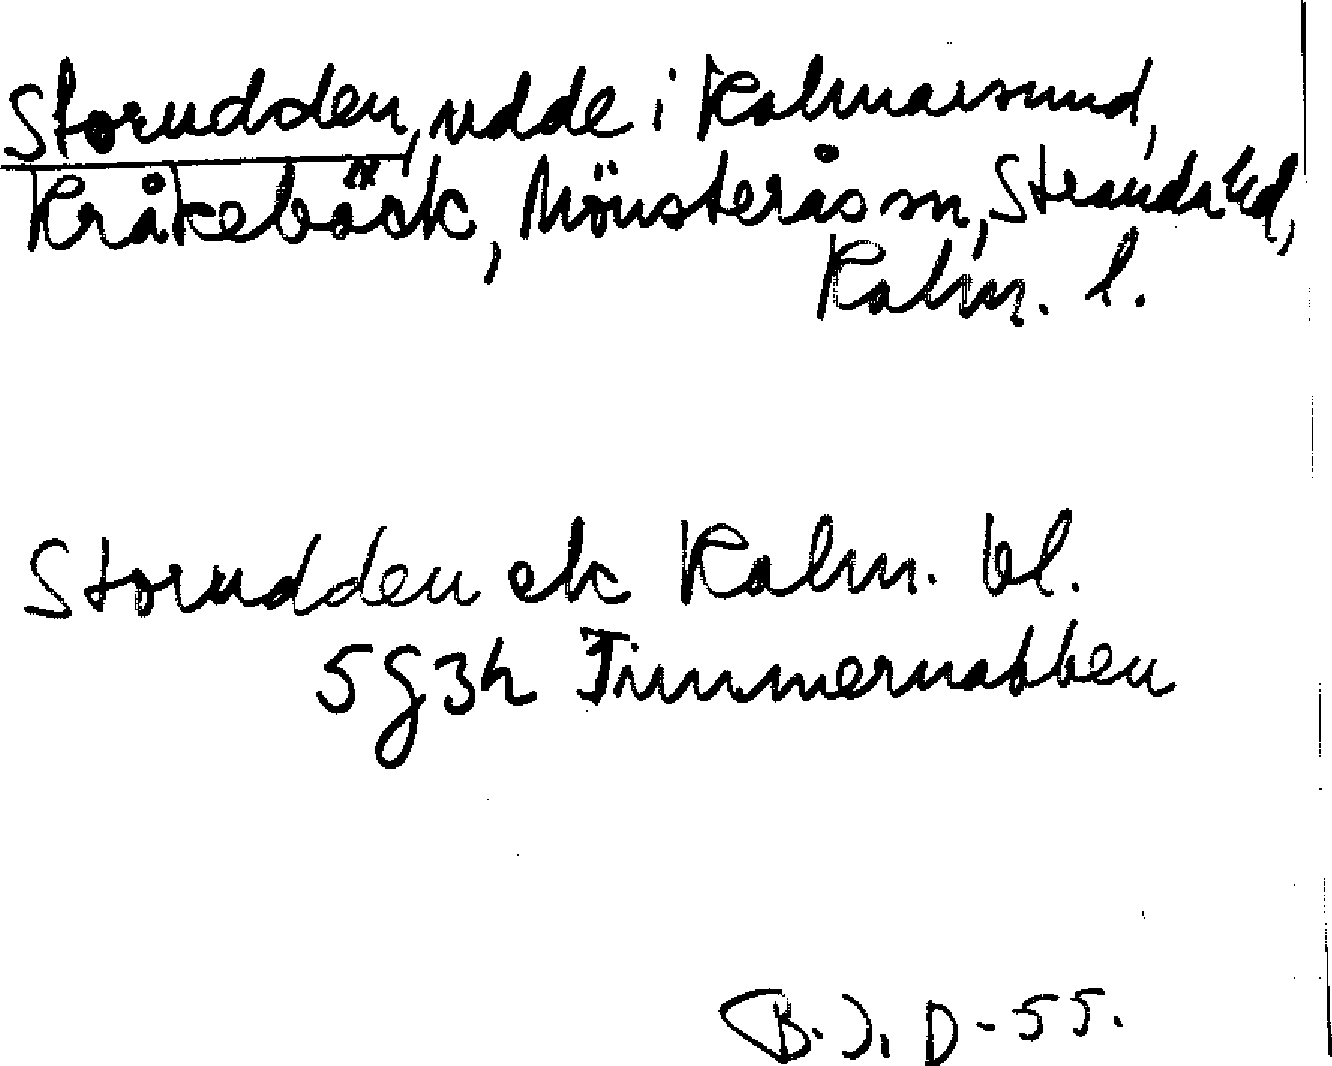 Storudden, udde i Kalmarsund,
Kråkebäck, Mönsterås sn, Stranda hd,
Kalm. l.
Storudden ek Kalm. bl.
5g3h Timmernabben
B.J. D-55.